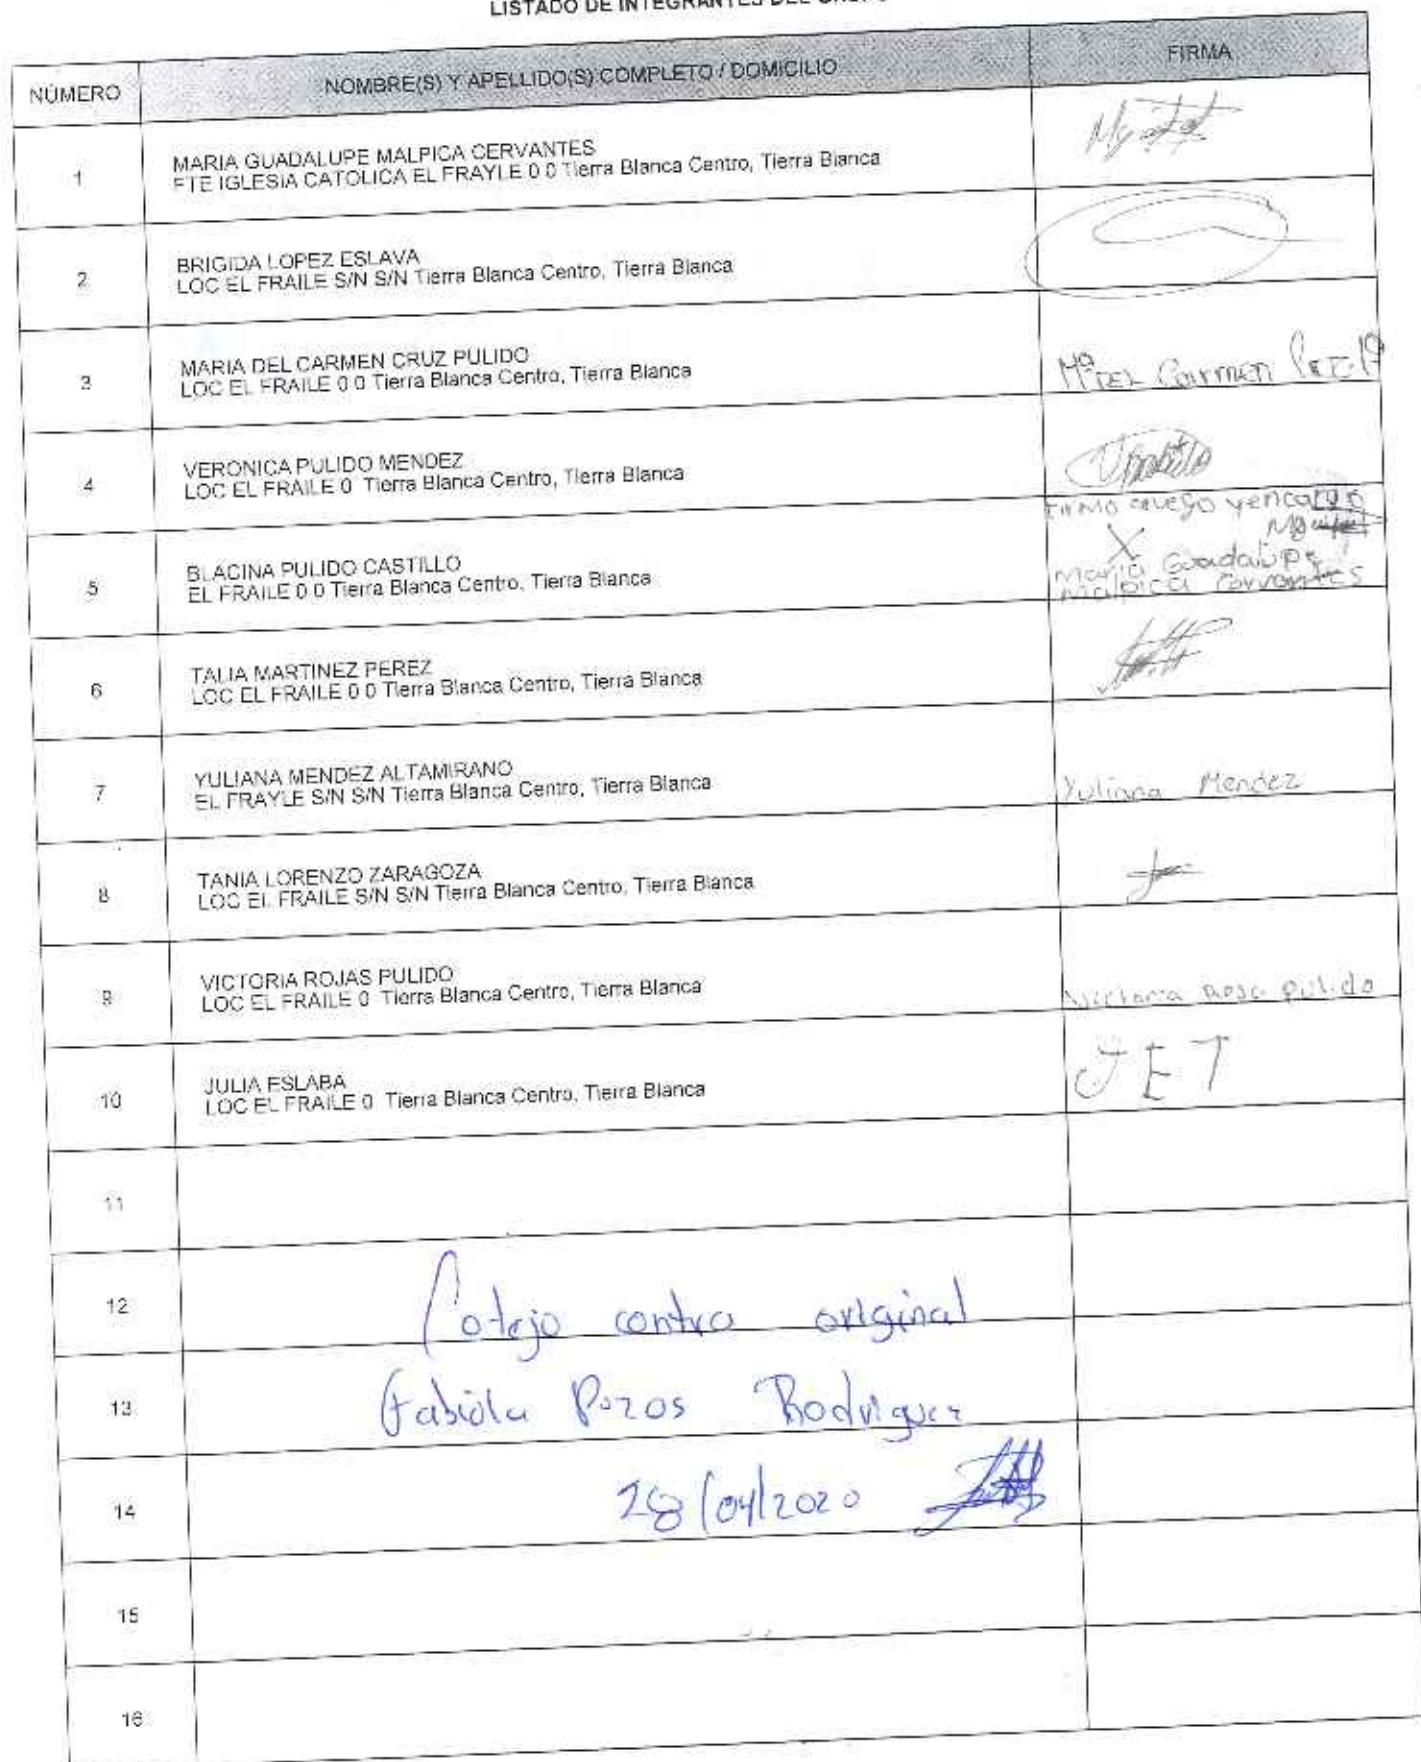 LISTADO DE INTEGRANTES DEL
NÚMERO
NOMBRE(S) Y APELLIDO(S) COMPLETO / DOMICILIO
FIRMA
1
MARIA GUADALUPE MALPICA CERVANTES
FTE IGLESIA CATOLICA EL FRAYLE 0 0 Tierra Blanca Centro, Tierra Blanca
2
BRIGIDA LOPEZ ESLAVA
LOC EL FRAILE S/N S/N Tierra Blanca Centro, Tierra Blanca
3
MARIA DEL CARMEN CRUZ PULIDO
LOC EL FRAILE 0 0 Tierra Blanca Centro, Tierra Blanca
Mª DEL Carmen
4
VERONICA PULIDO MENDEZ
LOC EL FRAILE 0 Tierra Blanca Centro, Tierra Blanca
5
BLACINA PULIDO CASTILLO
EL FRAILE 0 0 Tierra Blanca Centro, Tierra Blanca
X
Maria Guadalupe
Malpica Cervantes
6
TALIA MARTINEZ PEREZ
LOC EL FRAILE 0 0 Tierra Blanca Centro, Tierra Blanca
7
YULIANA MENDEZ ALTAMIRANO
EL FRAYLE S/N S/N Tierra Blanca Centro, Tierra Blanca
Yuliana Mendez
8
TANIA LORENZO ZARAGOZA
LOC EL FRAILE S/N S/N Tierra Blanca Centro, Tierra Blanca
9
VICTORIA ROJAS PULIDO
LOC EL FRAILE 0 Tierra Blanca Centro, Tierra Blanca
Victoria pulido
10
JULIA ESLABA
LOC EL FRAILE 0 Tierra Blanca Centro, Tierra Blanca
JET
11
12
Cotejo contra original
13
Fabiola Pozos Rodriguez
14
28/04/2020
15
16